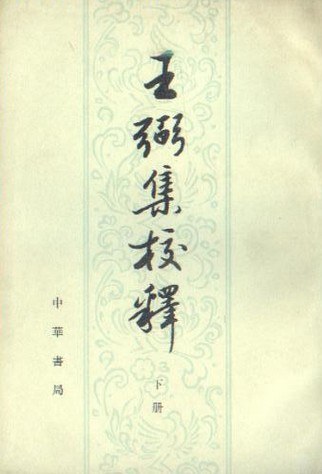 王弼集校釋
下册
中華書局